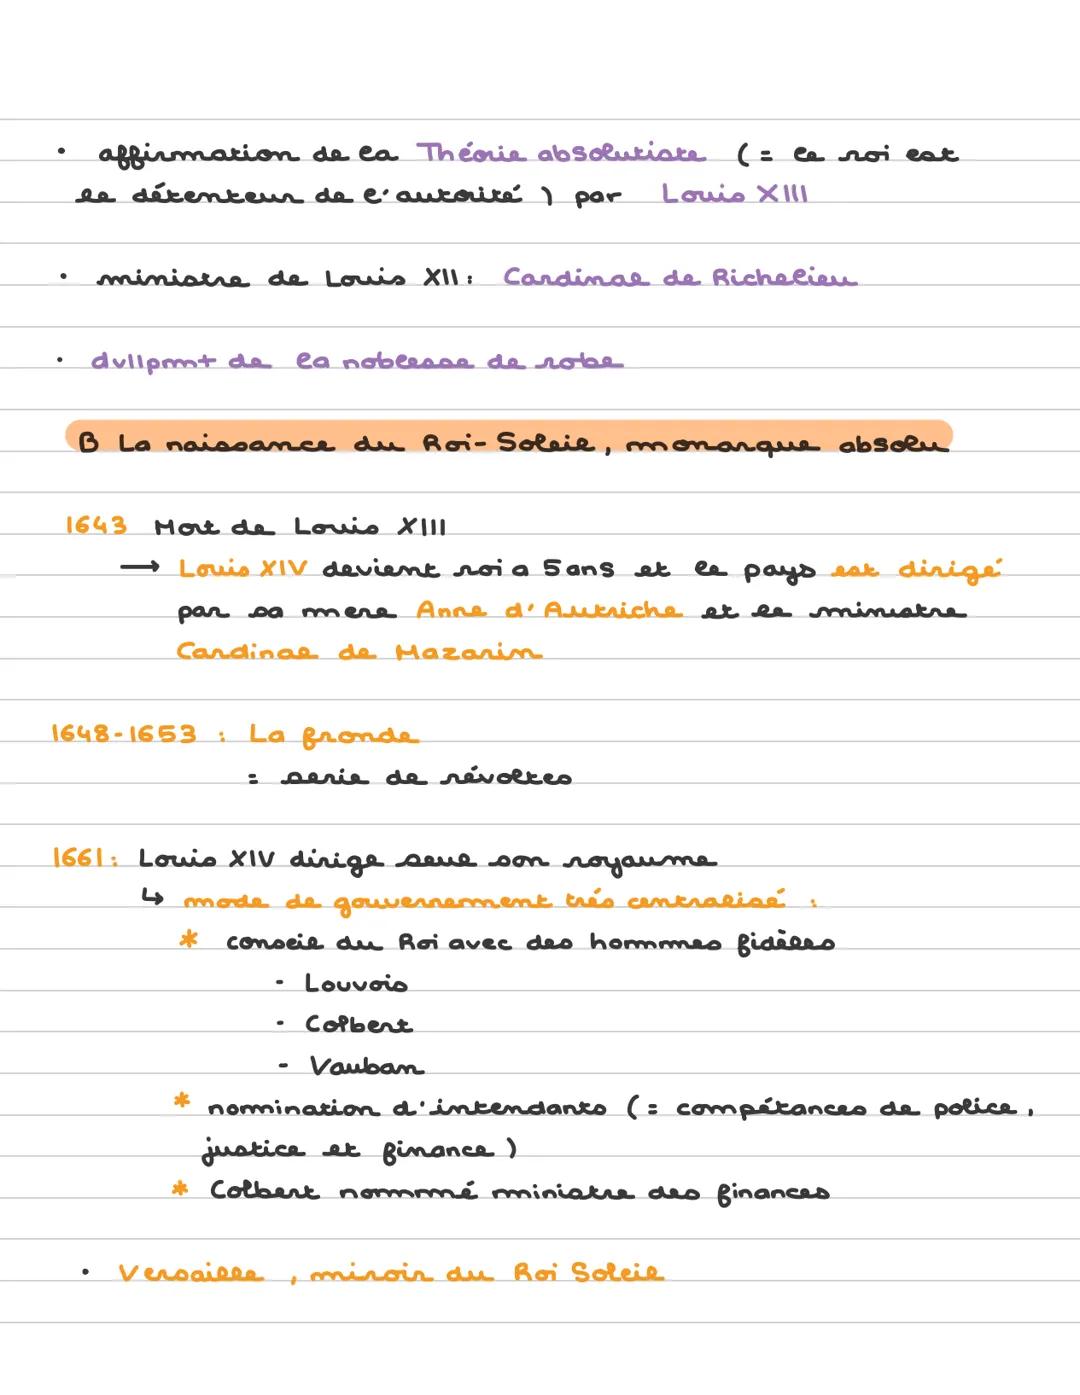 • affirmation de la Théorie absolutiste (= le roi est
le détenteur de l'autorité) par Louis XIII
• ministre de Louis XII: Cardinal de Richelieu
• dvllpmt de la noblesse de robe
B La naissance du Roi-Soleil, monarque absolu
1643 Mort de Louis XIII
→ Louis XIV devient roi a 5 ans et le pays est dirigé
par sa mere Anne d'Autriche et le ministre
Cardinal de Mazarin
1648-1653 : La fronde
= serie de révoltes
1661: Louis XIV dirige seul son royaume
↳ mode de gouvernement trés centralisé :
* conseil du Roi avec des hommes fidèles
- Louvois
- Colbert
- Vauban
* nomination d'intendants (= compétances de police,
justice et finance)
* Colbert nommmé ministre des finances
• Versaille, miroir du Roi Soleil